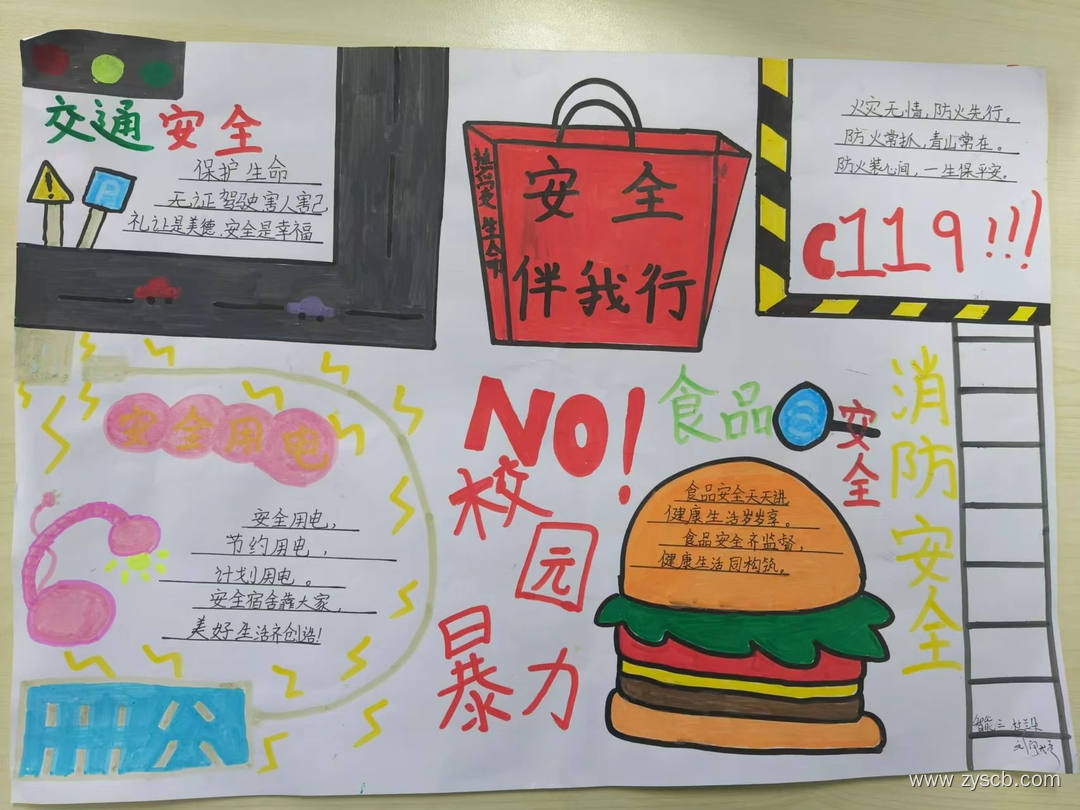 交通安全
保护生命
无证驾驶害人害己
礼让是美德.安全是幸福
P
热爱生命
安全
伴我行
火灾无情,防火先行。
防火常抓,青山常在。
防火装心间,一生保平安。
119!!!
安全用电
安全用电,
节约用电,
计划用电。
安全宿舍靠大家,
美好生活齐创造!
NO!
校园
暴力
食品安全
食品安全天天进,
健康生活岁岁享。
食品安全齐监督,
健康生活同构筑。
消防安全
www.zyscb.com